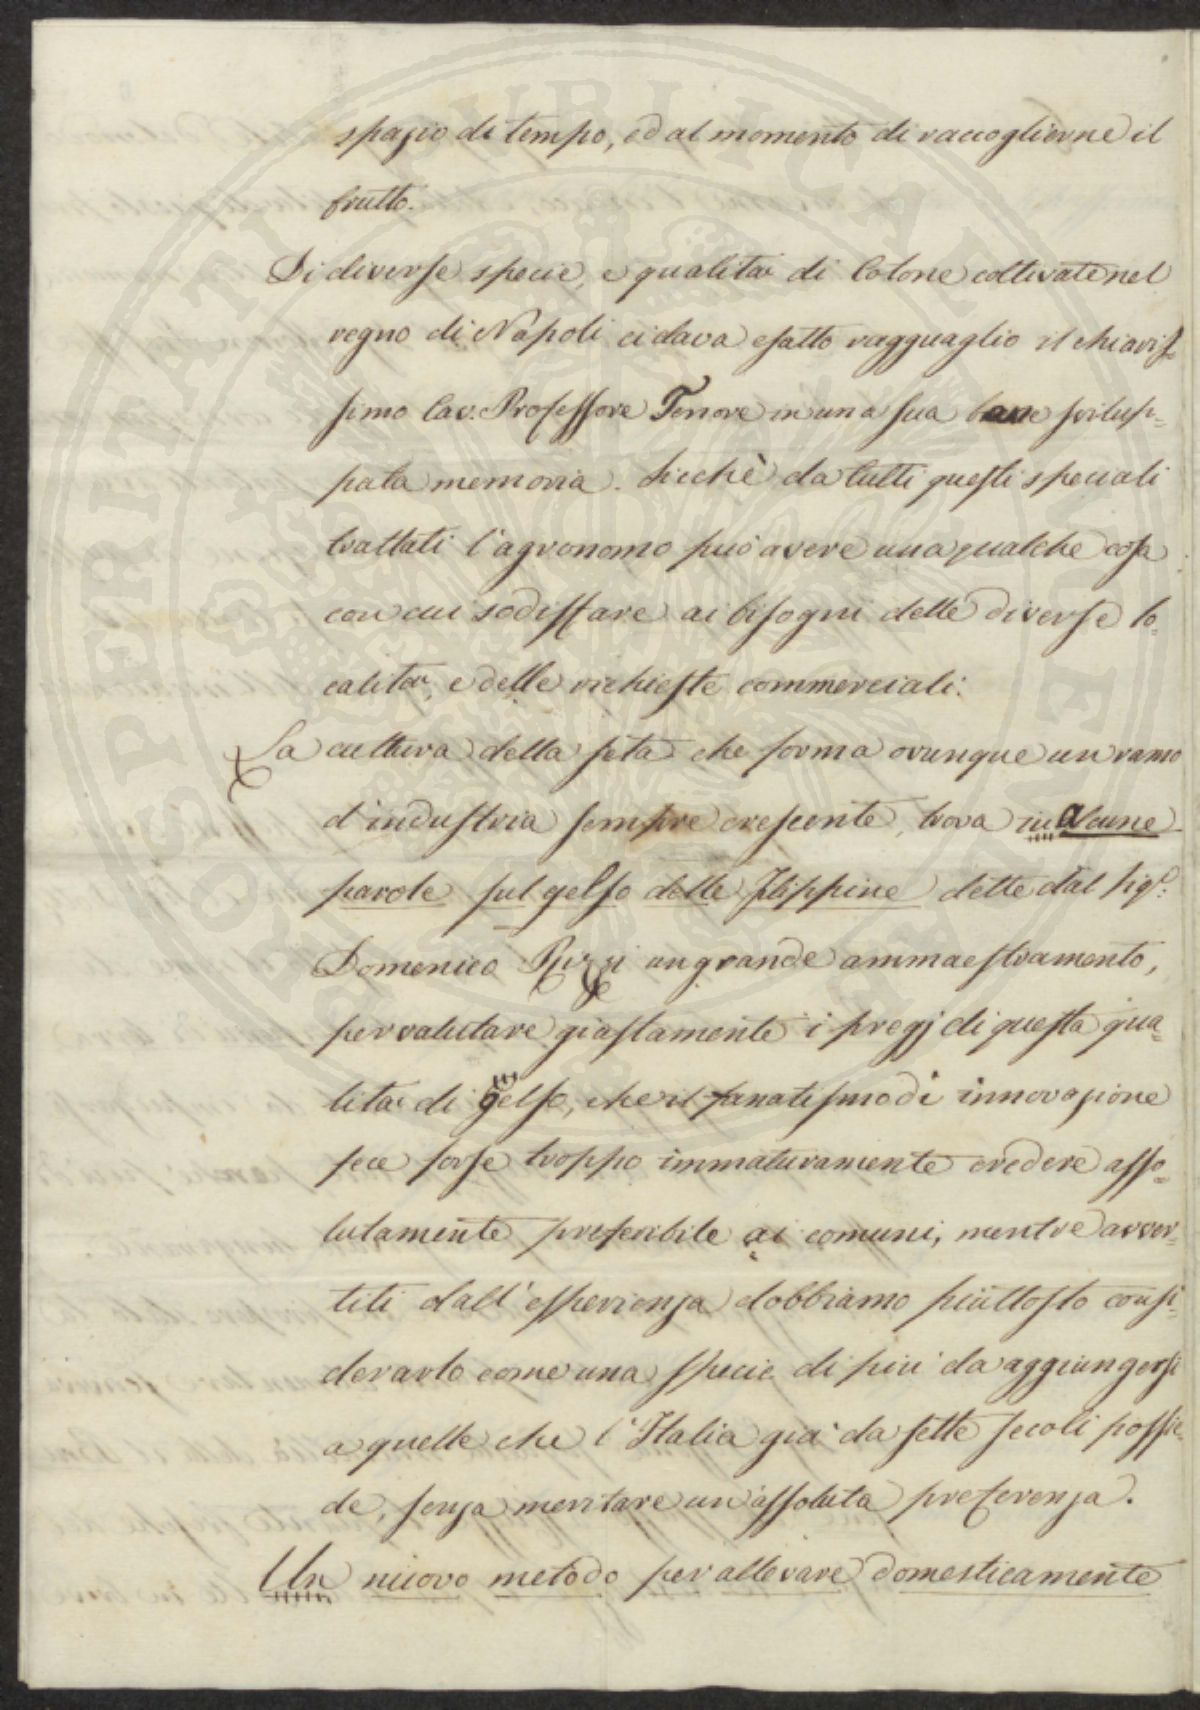 spazio di tempo, ed al momento di raccoglierne il
frutto.
Di diverse specie, e qualità di Cotone coltivate nel
regno di Napoli ci dava esatto ragguaglio il chiaris-
simo Cav. Professore Tenore in una sua bene svilup-
pata memoria. Sicchè da tutti questi speciali
trattati l'agronomo può avere una qualche cosa
con cui sodisfare ai bisogni delle diverse lo-
calità, e delle richieste commerciali.
La cultura della seta che forma ovunque un ramo
d'industria sempre crescente, trova in alcune
parole sul gelso delle Filippine dette dal Sigr.
Domenico Rizzi un grande ammaestramento,
per valutare giustamente i pregj di questa qua-
lità di gelso, che il fanatismo di innovazione
fece forse troppo immaturamente credere asso-
lutamente preferibile ai comuni, mentre avver-
titi dall'esperienza dobbiamo piuttosto consi-
derarlo come una specie di più da aggiungersi
a quelle che l'Italia già da sette secoli possie-
de, senza meritare un'assoluta preferenza.
Un nuovo metodo per allevare domesticamente
PROSPERITATI PUBLICAE AUGENDAE